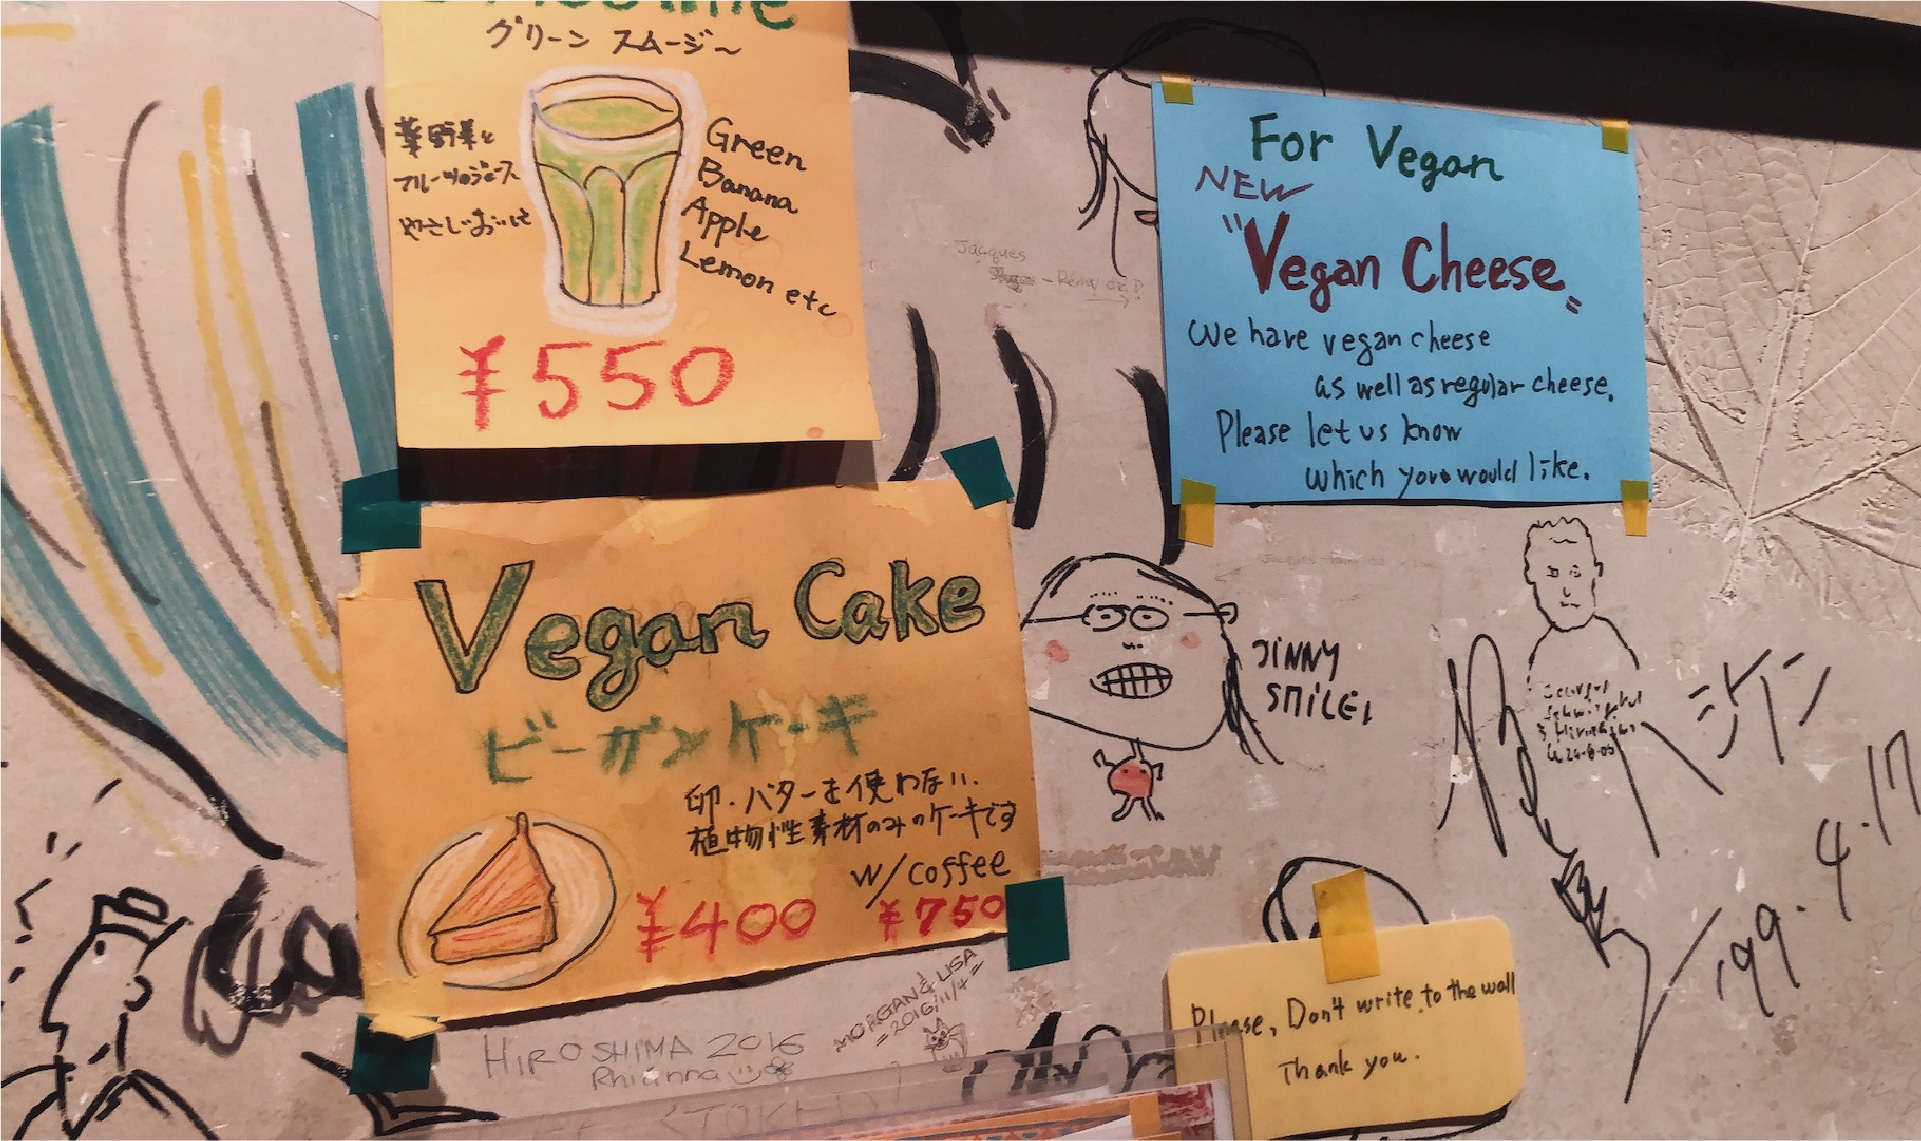 グリーン スムージー
葉野菜と
フルーツのジュース
やさしいおいしさ
Green
Banana
Apple
Lemon etc
¥550
For Vegan
NEW
"Vegan Cheese"
We have vegan cheese
as well as regular cheese.
Please let us know
which you would like.
Vegan Cake
ビーガンケーキ
卵・バターを使わない、
植物性素材のみのケーキです
w/coffee
¥400
¥750
Jacques
JINNY
SMILE!
'99.4.17
MORGAN & LISA
=2016/11/4=
HIROSHIMA 2016
Rhianna
Please, Don't write to the wall
Thank you.